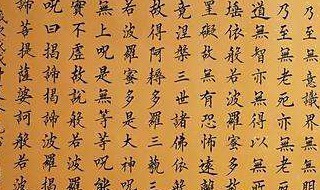 乃至無意識界無無明
乃至無老死亦無老
道無智亦無得以無
埵依般若波羅蜜多
罣礙故無有恐怖遠離
竟涅槃三世諸佛依般
故得阿耨多羅三藐三
若波羅蜜多是大神呪
無上呪是無等等呪能
實不虛故說般若波羅
呪曰揭諦揭諦波羅揭
諦菩提薩婆訶般若波